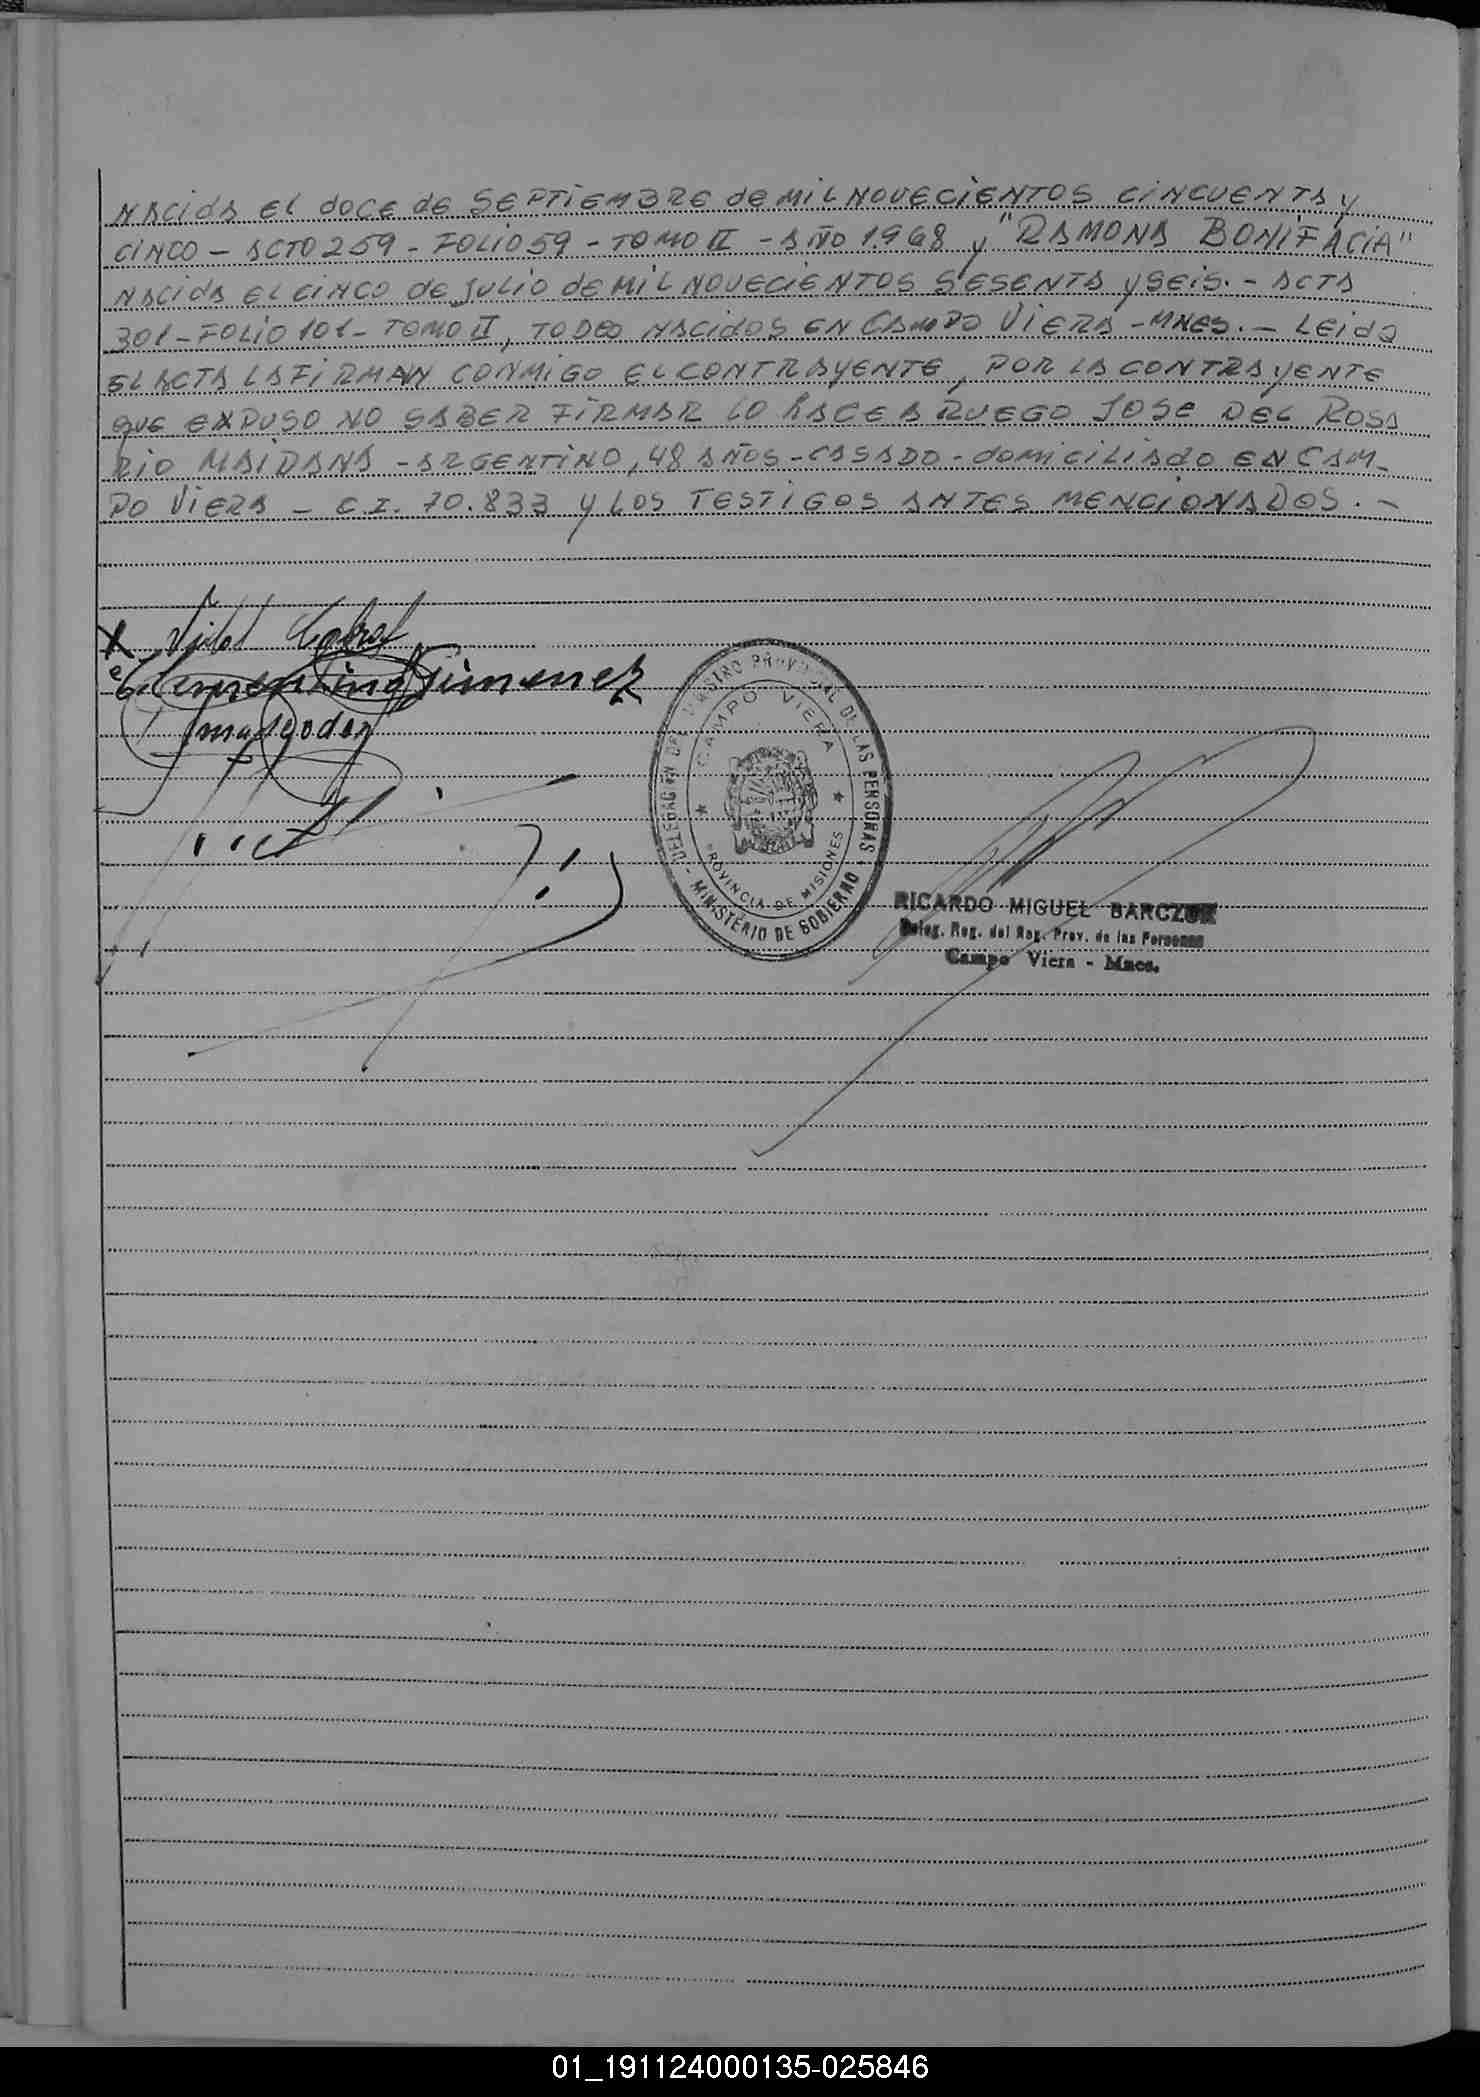 NACIDA EL DOCE DE SEPTIEMBRE de MIL NOVECIENTOS CINCUENTA y
CINCO - ACTO 259 - FOLIO 59 - TOMO II - AÑO 1.968 y "RAMONA BONIFACIA"
NACIDA EL CINCO DE JULIO DE MIL NOVECIENTOS SESENTA y SEIS. - ACTA
301 - FOLIO 101 - TOMO II, TODOS NACIDOS EN CAMPO VIERA - MNES. - LEIDA
EL ACTA LA FIRMAN CONMIGO EL CONTRAYENTE, POR LA CONTRAYENTE
QUE EXPUSO NO SABER FIRMAR LO HACE A RUEGO JOSE DEL ROSA
RIO MAIDANA - ARGENTINO, 48 AÑOS - CASADO - domiciliado EN CAM-
PO VIERA - C.I. 70.833 y LOS TESTIGOS ANTES MENCIONADOS. -
X Vidal Cabral
Clementino Gimenez
DELEGACIÓN DEL REGISTRO PROVINCIAL DE LAS PERSONAS
CAMPO VIERA
PROVINCIA DE MISIONES
- MINISTERIO DE GOBIERNO -
RICARDO MIGUEL
Deleg. Reg. del Reg. Prov. de las Personas
Campo Viera - Mnes.
01_191124000135-025846